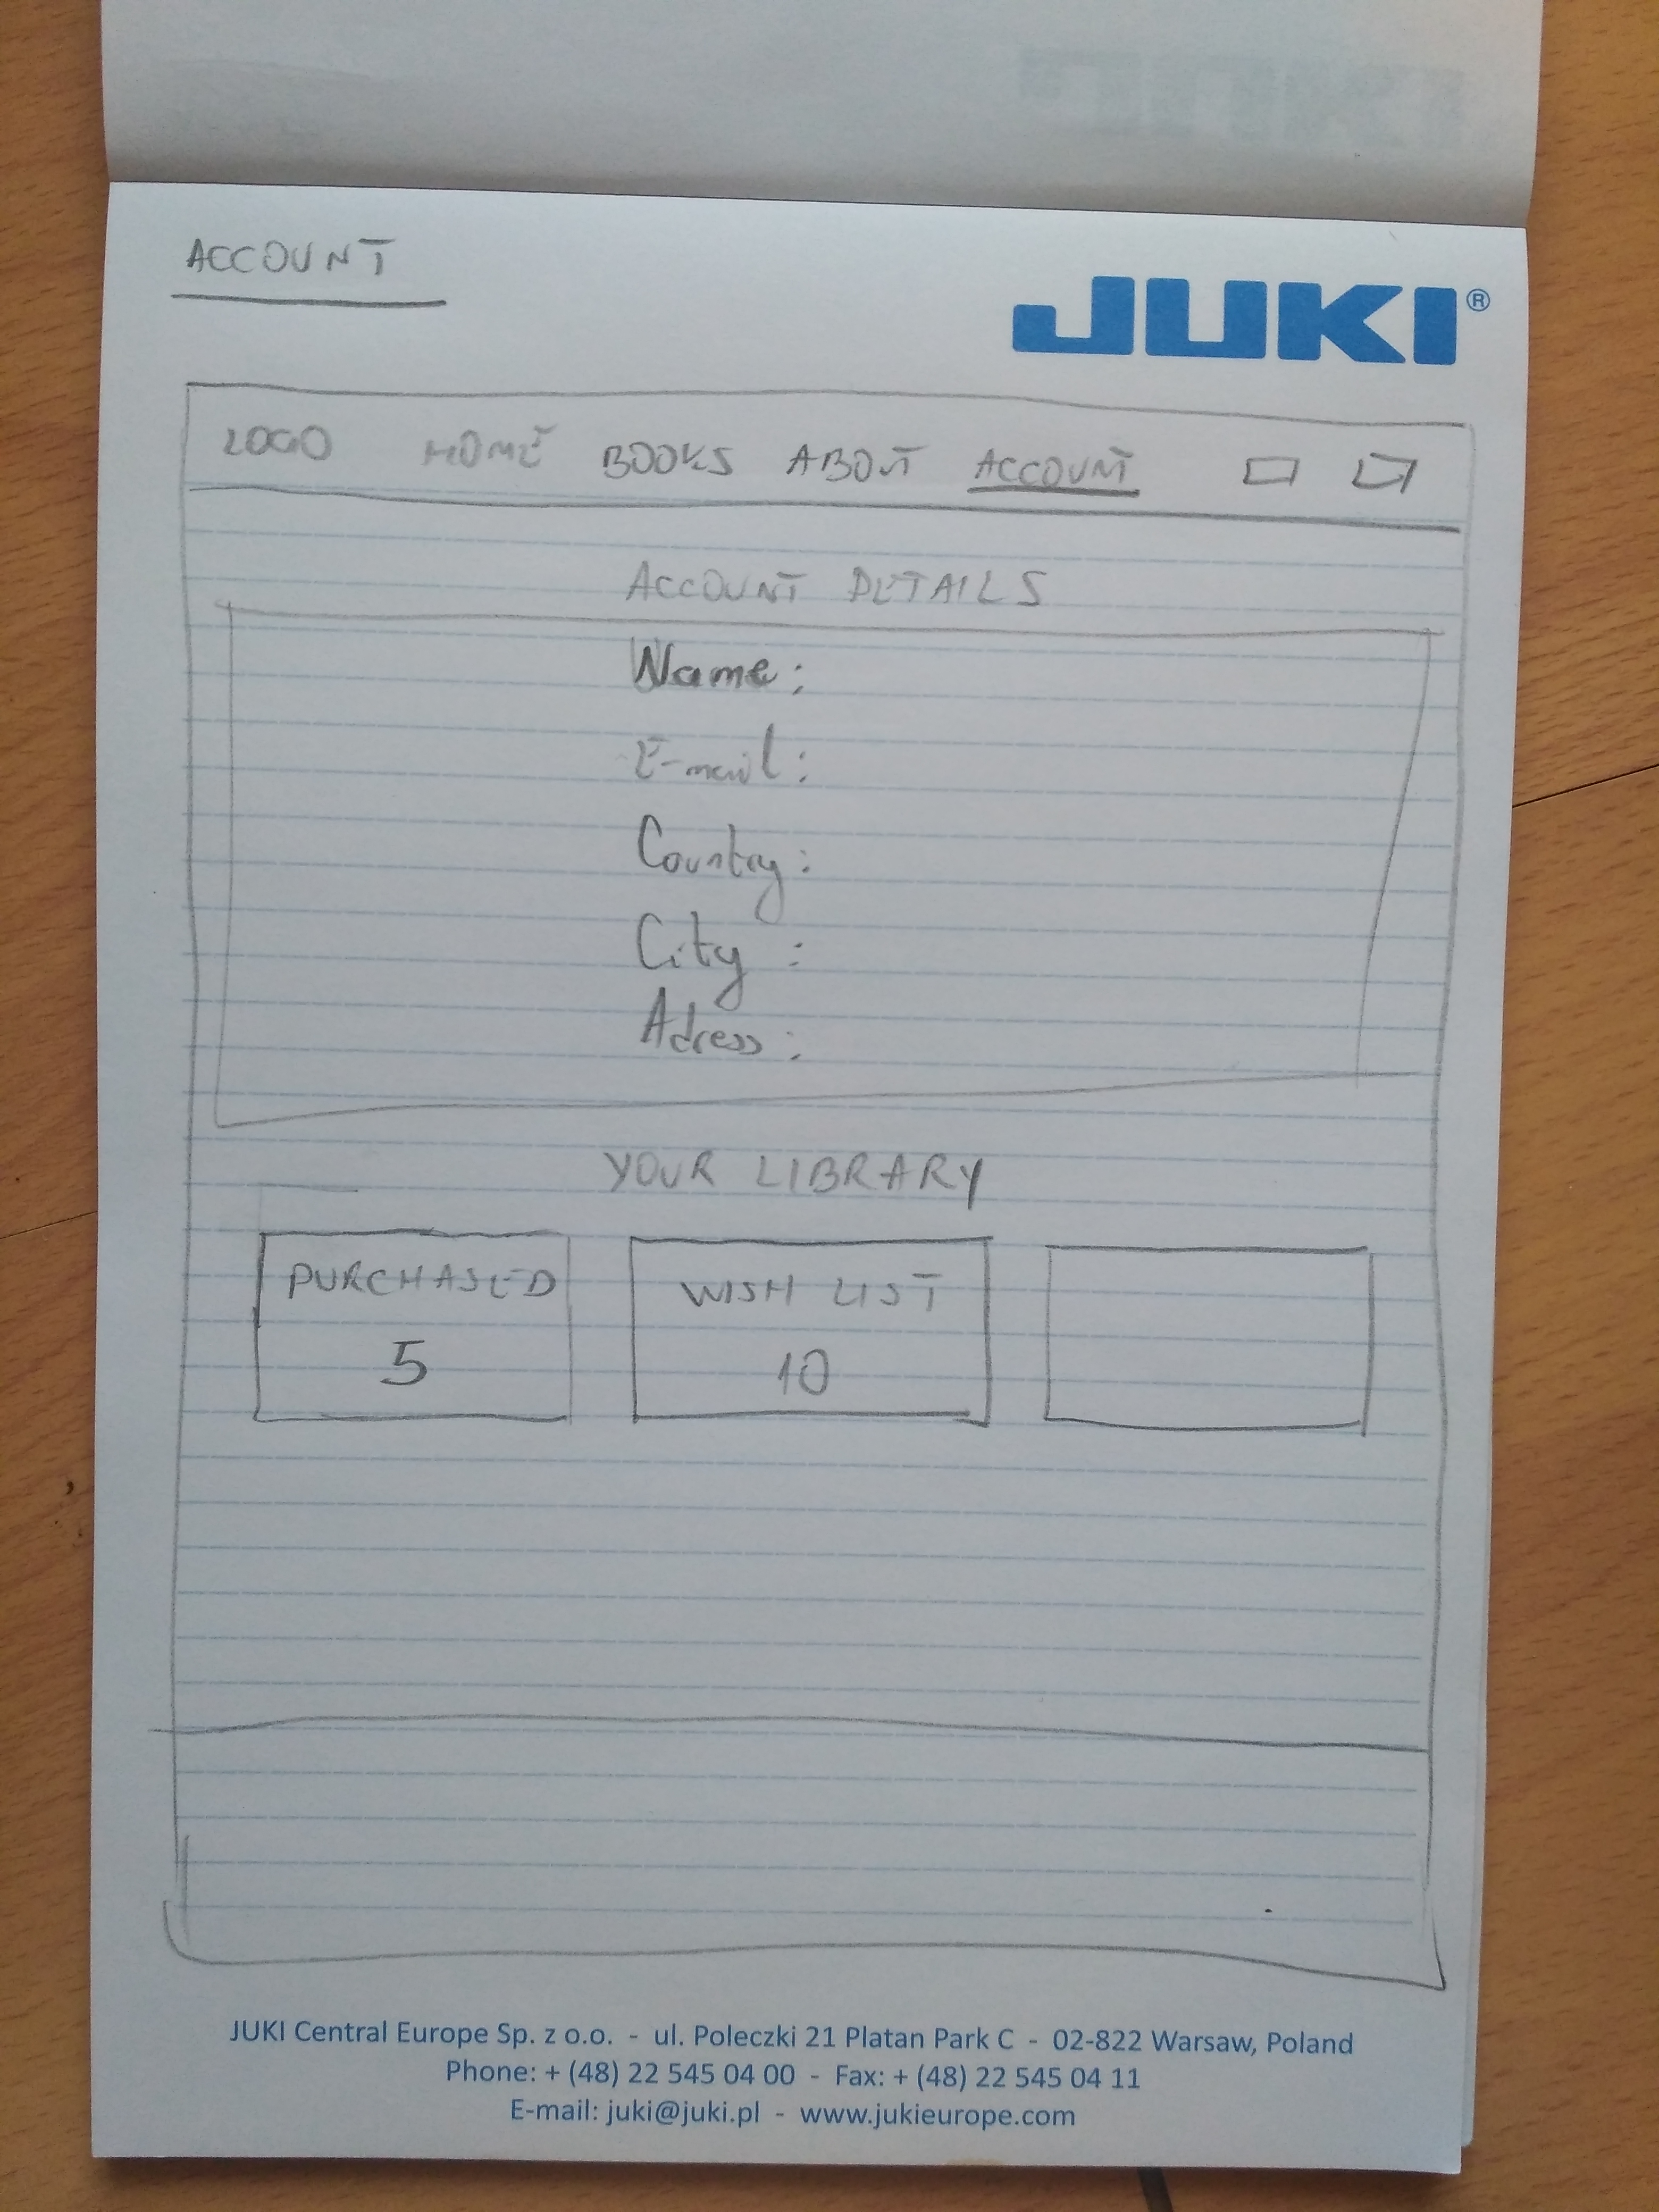 ACCOUNT
JUKI®
LOGO HOME BOOKS ABOUT ACCOUNT
ACCOUNT DETAILS
Name:
E-mail:
Country:
City :
Adress:
YOUR LIBRARY
PURCHASED WISH LIST
5 10
JUKI Central Europe Sp. z o.o. - ul. Poleczki 21 Platan Park C - 02-822 Warsaw, Poland
Phone: + (48) 22 545 04 00 - Fax: + (48) 22 545 04 11
E-mail: juki@juki.pl - www.jukieurope.com